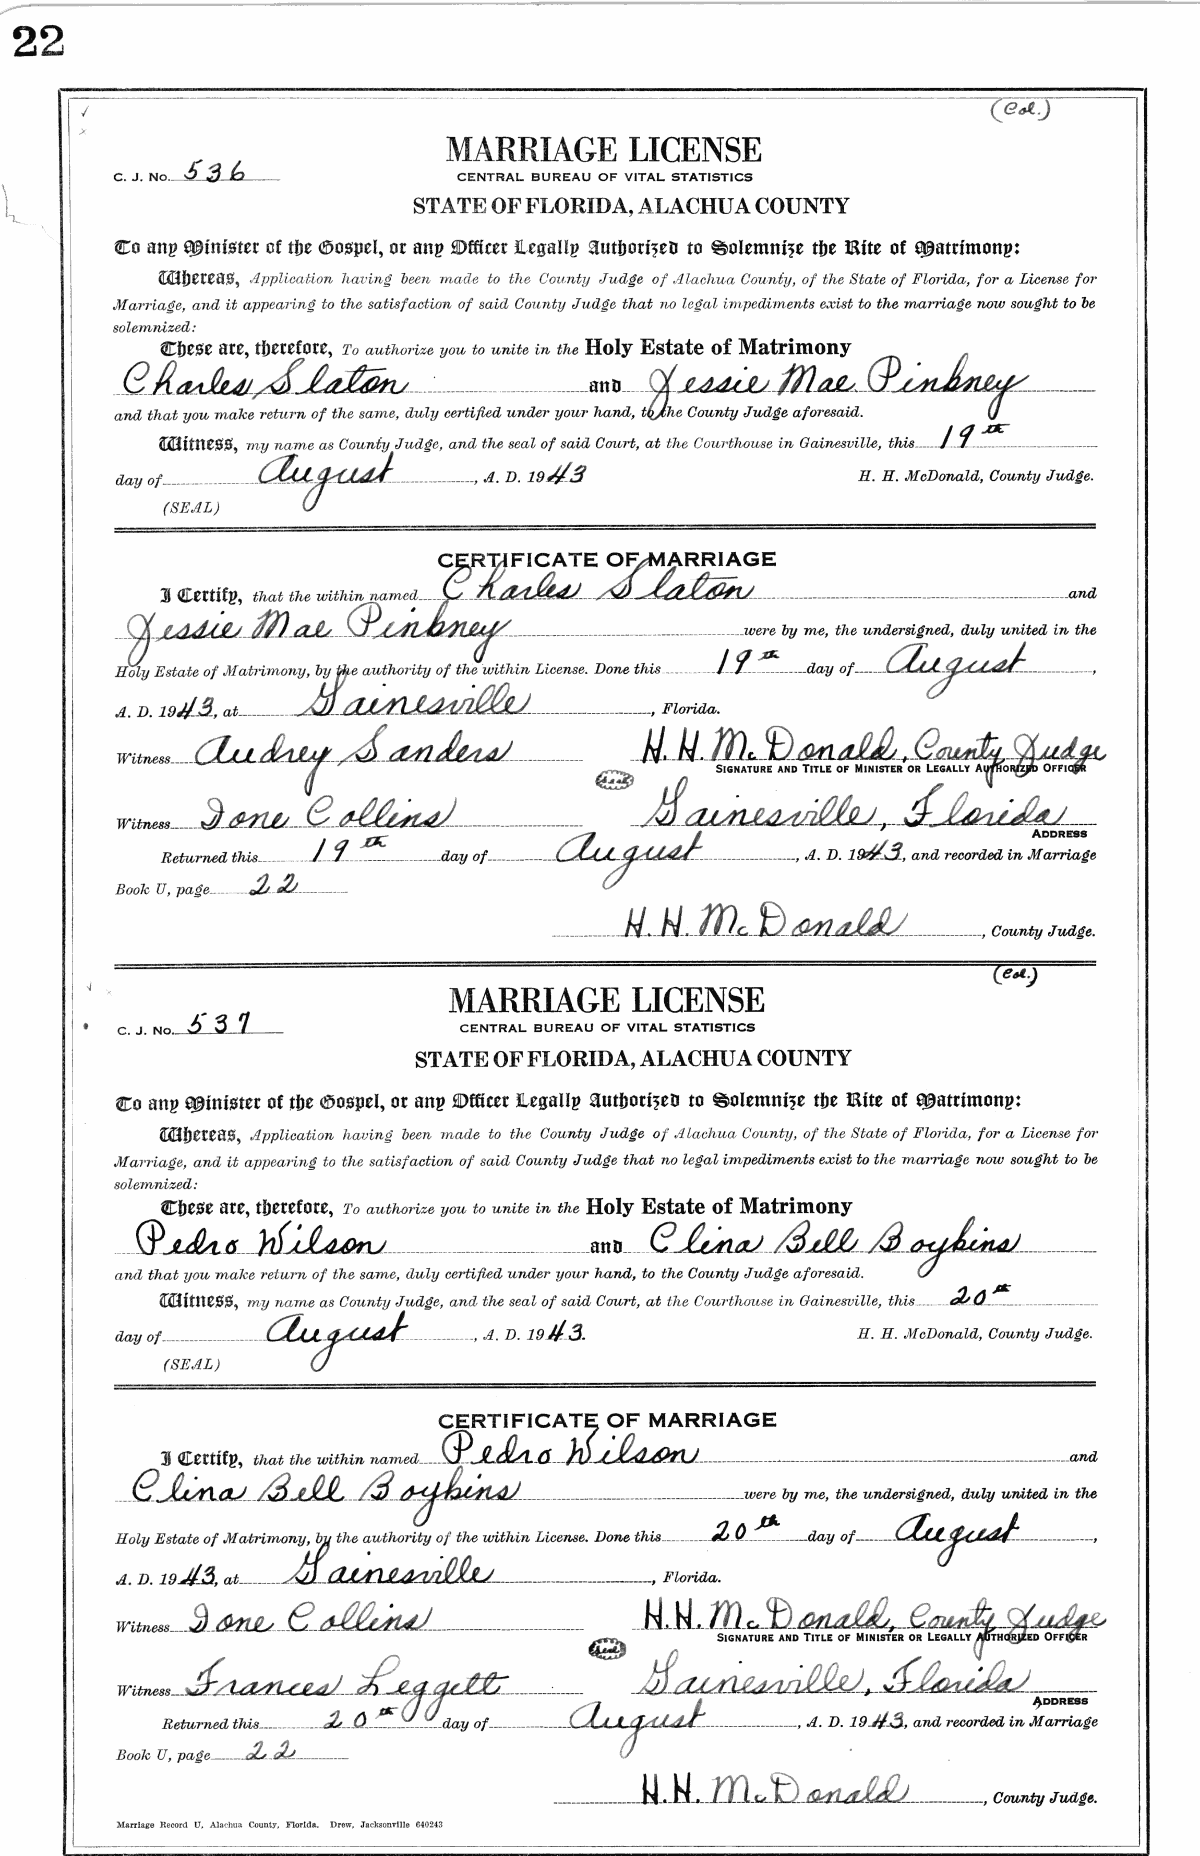 22
(Col.)
MARRIAGE LICENSE
C. J. No. 536
CENTRAL BUREAU OF VITAL STATISTICS
STATE OF FLORIDA, ALACHUA COUNTY
To any Minister of the Gospel, or any Officer Legally Authorized to Solemnize the Rite of Matrimony:
Whereas, Application having been made to the County Judge of Alachua County, of the State of Florida, for a License for
Marriage, and it appearing to the satisfaction of said County Judge that no legal impediments exist to the marriage now sought to be
solemnized:
These are, therefore, To authorize you to unite in the Holy Estate of Matrimony
Charles Slaton and Jessie Mae Pinkney
and that you make return of the same, duly certified under your hand, to the County Judge aforesaid.
Witness, my name as County Judge, and the seal of said Court, at the Courthouse in Gainesville, this 19th
day of August, A. D. 1943 H. H. McDonald, County Judge.
(SEAL)
CERTIFICATE OF MARRIAGE
I Certify, that the within named Charles Slaton and
Jessie Mae Pinkney were by me, the undersigned, duly united in the
Holy Estate of Matrimony, by the authority of the within License. Done this 19th day of August,
A. D. 1943, at Gainesville, Florida.
Witness Audrey Sanders H. H. McDonald, County Judge
SIGNATURE AND TITLE OF MINISTER OR LEGALLY AUTHORIZED OFFICER
(seal)
Witness Ione Collins Gainesville, Florida
ADDRESS
Returned this 19th day of August, A. D. 1943, and recorded in Marriage
Book U, page 22
H. H. McDonald, County Judge.
(Col.)
MARRIAGE LICENSE
C. J. No. 537
CENTRAL BUREAU OF VITAL STATISTICS
STATE OF FLORIDA, ALACHUA COUNTY
To any Minister of the Gospel, or any Officer Legally Authorized to Solemnize the Rite of Matrimony:
Whereas, Application having been made to the County Judge of Alachua County, of the State of Florida, for a License for
Marriage, and it appearing to the satisfaction of said County Judge that no legal impediments exist to the marriage now sought to be
solemnized:
These are, therefore, To authorize you to unite in the Holy Estate of Matrimony
Pedro Wilson and Clina Bell Boykins
and that you make return of the same, duly certified under your hand, to the County Judge aforesaid.
Witness, my name as County Judge, and the seal of said Court, at the Courthouse in Gainesville, this 20th
day of August, A. D. 1943. H. H. McDonald, County Judge.
(SEAL)
CERTIFICATE OF MARRIAGE
I Certify, that the within named Pedro Wilson and
Clina Bell Boykins were by me, the undersigned, duly united in the
Holy Estate of Matrimony, by the authority of the within License. Done this 20th day of August,
A. D. 1943, at Gainesville, Florida.
Witness Ione Collins H. H. McDonald, County Judge
SIGNATURE AND TITLE OF MINISTER OR LEGALLY AUTHORIZED OFFICER
(seal)
Witness Frances Leggett Gainesville, Florida
ADDRESS
Returned this 20th day of August, A. D. 1943, and recorded in Marriage
Book U, page 22
H. H. McDonald, County Judge.
Marriage Record U, Alachua County, Florida. Drew, Jacksonville 640243